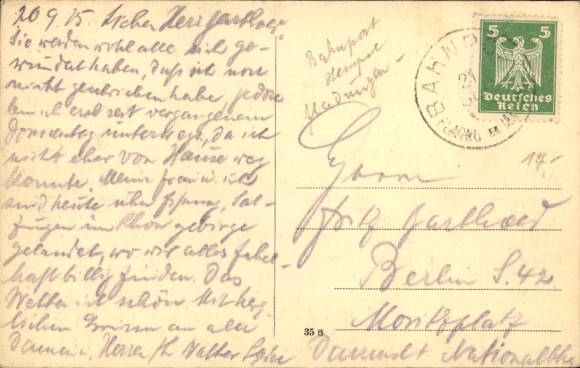 20 9. 25. Lieber Herr Garthoed
Sie werden wohl alle sich ge-
wundert haben, daß ich noch
nicht geschrieben habe jedoch
bin ich erst seit vergangenem
Donnerstag unterwegs, da ich
nicht eher von Hause weg
konnte. Meine Frau u. ich
sind heute über
zungen im Rhöngebirge
gelandet, wo wir alles fabel-
haft billig finden. Das
Wetter ist schön. Mit herz-
lichen Grüssen an alle
Damen u. Herren Ihr Walter
Bahnpost
Stempel
BAHNPOST
5 5
Deutsches
Reich
Herrn
Fritz Garthoed
Berlin S. 42
Moritzplatz
Nationalbk
35 B